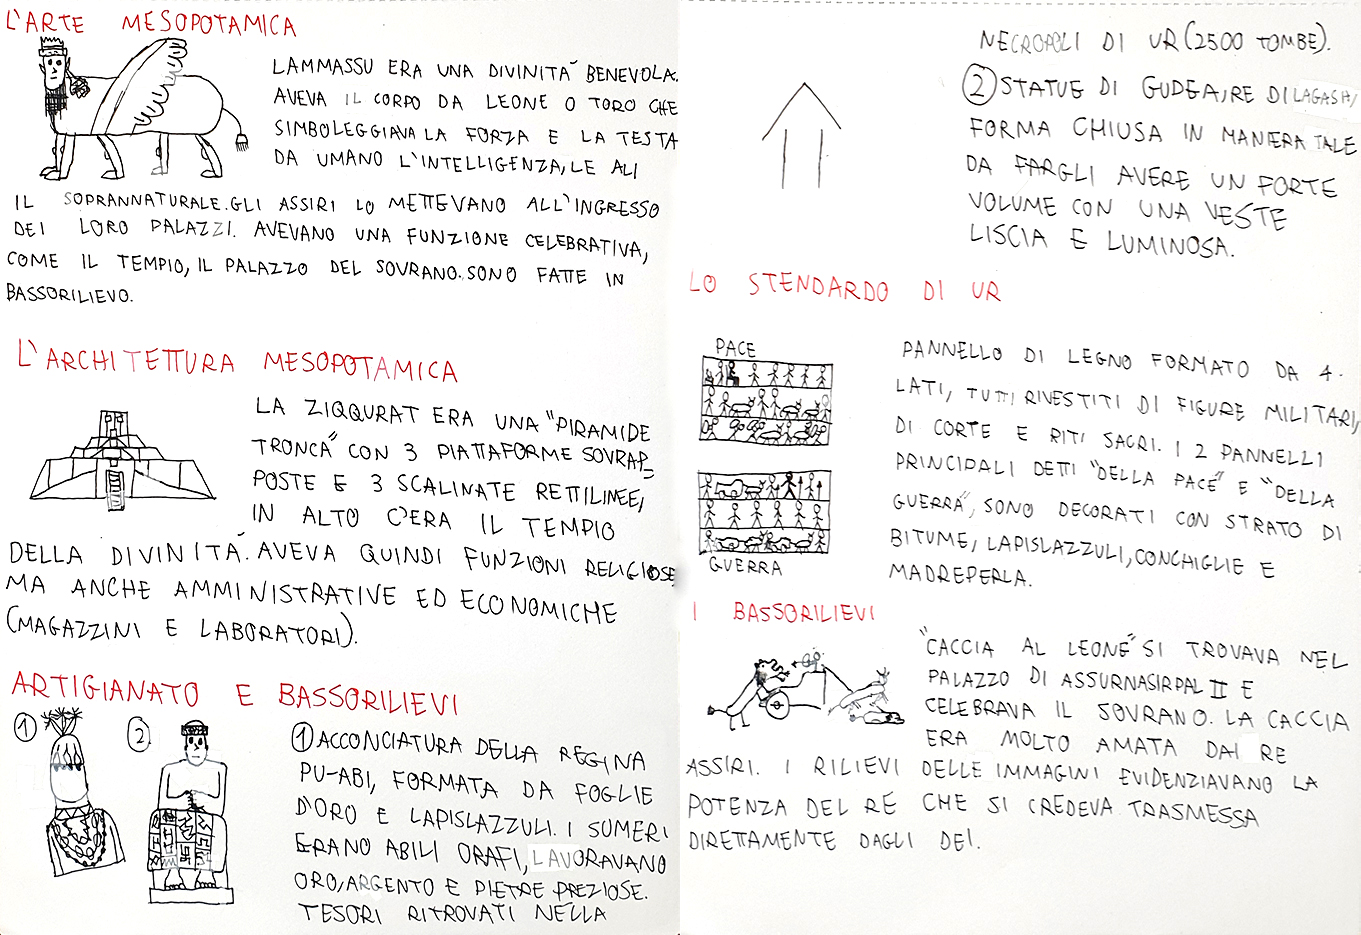 L'ARTE MESOPOTAMICA
LAMMASSU ERA UNA DIVINITÀ BENEVOLA.
AVEVA IL CORPO DA LEONE O TORO CHE
SIMBOLEGGIAVA LA FORZA E LA TESTA
DA UMANO L'INTELLIGENZA, LE ALI
IL SOPRANNATURALE. GLI ASSIRI LO METTEVANO ALL'INGRESSO
DEI LORO PALAZZI. AVEVANO UNA FUNZIONE CELEBRATIVA,
COME IL TEMPIO, IL PALAZZO DEL SOVRANO. SONO FATTE IN
BASSORILIEVO.
L'ARCHITETTURA MESOPOTAMICA
LA ZIQQURAT ERA UNA "PIRAMIDE
TRONCA" CON 3 PIATTAFORME SOVRAP_
POSTE E 3 SCALINATE RETTILINEE,
IN ALTO C'ERA IL TEMPIO
DELLA DIVINITÀ. AVEVA QUINDI FUNZIONI RELIGIOSE
MA ANCHE AMMINISTRATIVE ED ECONOMICHE
(MAGAZZINI E LABORATORI).
ARTIGIANATO E BASSORILIEVI
1 2
1 ACCONCIATURA DELLA REGINA
PU-ABI, FORMATA DA FOGLIE
D'ORO E LAPISLAZZULI. I SUMERI
ERANO ABILI ORAFI, LAVORAVANO
ORO, ARGENTO E PIETRE PREZIOSE.
TESORI RITROVATI NELLA
NECROPOLI DI UR (2500 TOMBE).
2 STATUE DI GUDEA, RE DI LAGASH,
FORMA CHIUSA IN MANIERA TALE
DA FARGLI AVERE UN FORTE
VOLUME CON UNA VESTE
LISCIA E LUMINOSA.
LO STENDARDO DI UR
PACE
GUERRA
PANNELLO DI LEGNO FORMATO DA 4
LATI, TUTTI RIVESTITI DI FIGURE MILITARI,
DI CORTE E RITI SACRI. I 2 PANNELLI
PRINCIPALI DETTI "DELLA PACE" E "DELLA
GUERRA", SONO DECORATI CON STRATO DI
BITUME, LAPISLAZZULI, CONCHIGLIE E
MADREPERLA.
I BASSORILIEVI
"CACCIA AL LEONE" SI TROVAVA NEL
PALAZZO DI ASSURNASIRPAL II E
CELEBRAVA IL SOVRANO. LA CACCIA
ERA MOLTO AMATA DAI RE
ASSIRI. I RILIEVI DELLE IMMAGINI EVIDENZIAVANO LA
POTENZA DEL RE CHE SI CREDEVA TRASMESSA
DIRETTAMENTE DAGLI DEI.